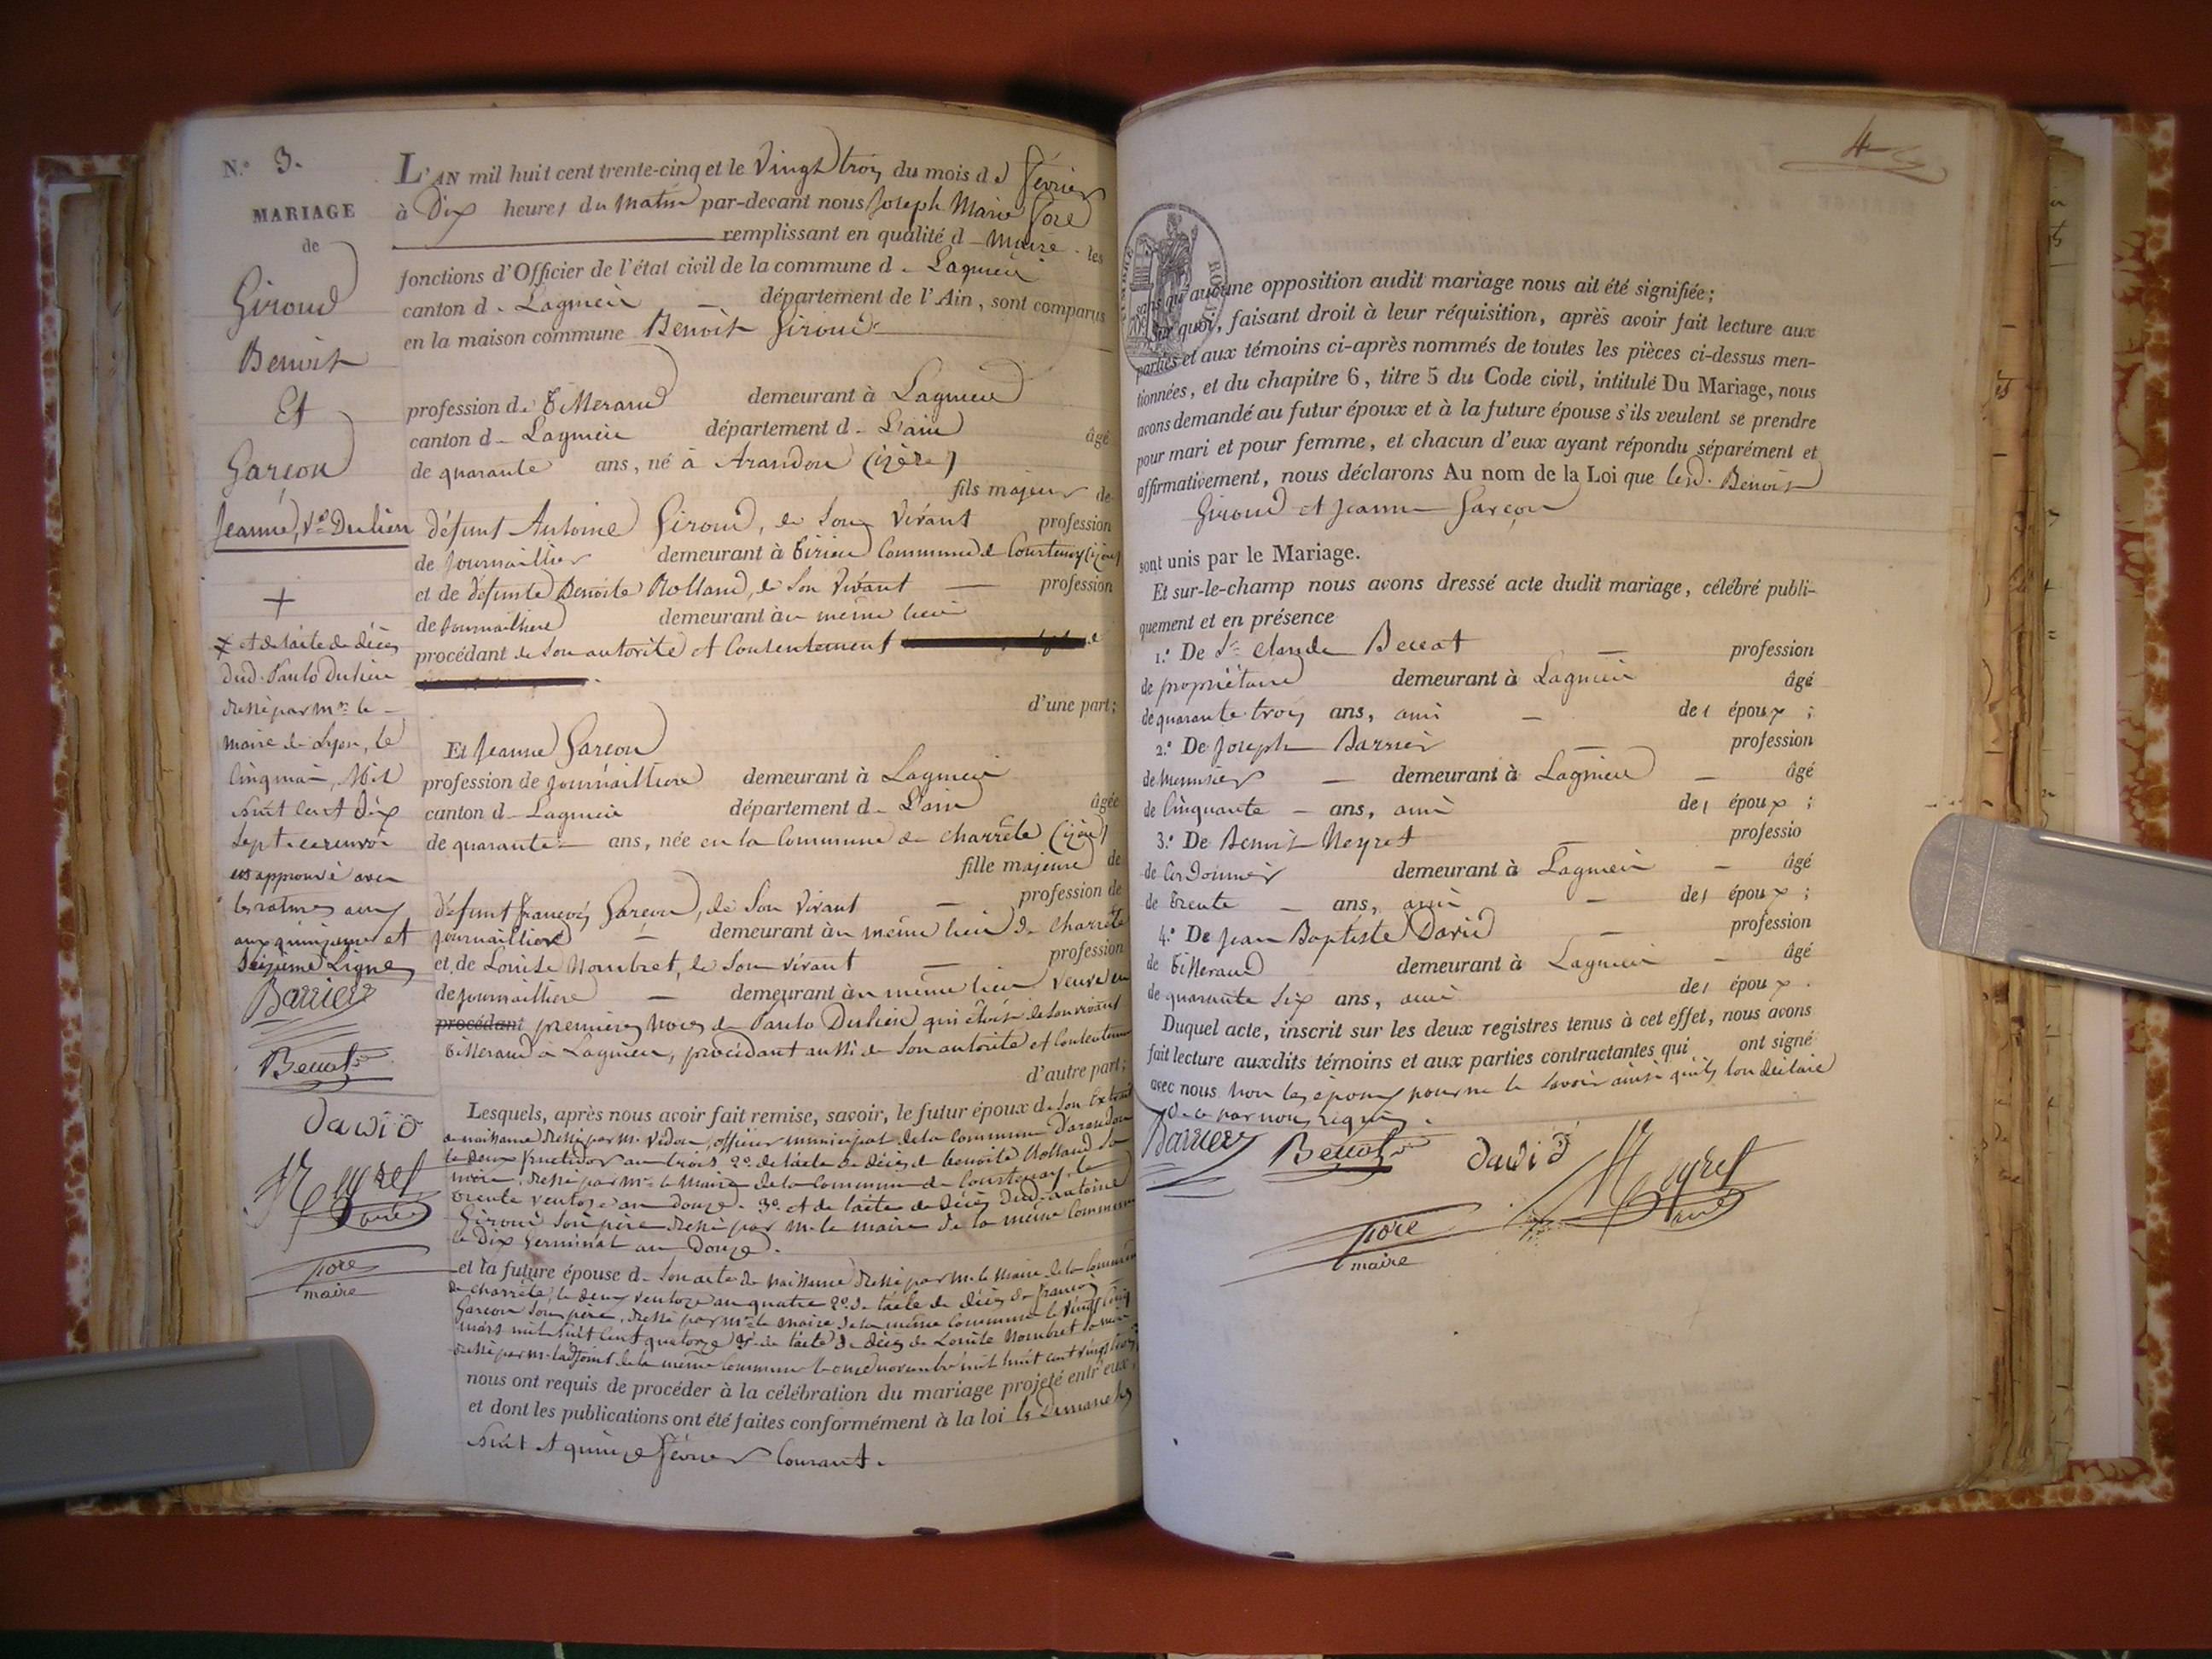 N.o 3.
MARIAGE
de
Giroud
Benoit
Et
Garçon
Jeanne, Ve Dulieu
+
et de l'acte de décès
dud. Paulo Dulieu
dressé par mr. le
maire de Lyon, le
cinq mai, Mil
huit cent dix
sept. ce renvoi
est approuvé avec
les ratures aux
quinzieme et
Seizieme Lignes
Barrier
Beccat
david
Meyret
Fore
maire
L'AN mil huit cent trente-cinq et le Vingt trois du mois de février
à Dix heures du Matin par-devant nous Joseph Marie Fore
remplissant en qualité d Maire les
fonctions d'Officier de l'état civil de la commune d Lagnieu
canton d Lagnieu département de l'Ain, sont comparus
en la maison commune Benoit Giroud
profession de Tisserand demeurant à Lagnieu
canton d Lagnieu département d L'ain âgé
de quarante ans, né à Arandon (izère)
fils majeur de
défunt Antoine Giroud, de Son Vivant profession
de Journaillier demeurant à Tirieu Commune de Courtenay (izère)
et de défunte Benoite Rolland, de Son Vivant profession
de Journailliere demeurant au même lieu
procédant de Son autorité et Consentement
d'une part;
Et Jeanne Garcon
profession de Journailliere demeurant à Lagnieu
canton d Lagnieu département d L'ain âgée
de quarante ans, née en la Commune de Charrète (izère)
fille majeure de
défunt françois Garcon, de Son Vivant profession de
journaillier demeurant au même lieu de Charrète
et de Louise Nombret, de Son vivant profession
de journailliere demeurant au même lieu veuve en
procédant premières Noces de Paulo Dulieu qui étoit de Son vivant
Tisserand à Lagnieu, procédant aussi de Son autorité et Consentement
d'autre part;
Lesquels, après nous avoir fait remise, savoir, le futur époux de Son Extrait
de naissance dressé par m. Vidon, officier municipal de la Commune D'arandon
le deux fructidor an trois 2o. de l'acte de décès de benoite Rolland Sa
mère, dressé par mr. le Maire de la Commune de Courtenay, le
trente ventose an douze. 3o. et de l'acte de décès dud. Antoine
Giroud Son père dressé par m. le maire de la même Commune
le Dix Germinal an Douze.
et la future épouse d Son acte de naissance dressé par m. le Maire de la Commune
de Charrète, le deux ventose an quatre 2o. de l'acte de décès de françois
Garcon Son père, dressé par mr. le maire de la même Commune le vingt cinq
mars mil huit cent quatorze 3o. de l'acte de décès de Louise Nombret sa mère
dressé par m. l'adjoint de la même Commune le onze novembre mil huit cent vingt trois,
nous ont requis de procéder à la célébration du mariage projeté entr'eux,
et dont les publications ont été faites conformément à la loi les Dimanches
huit et quinze février Courant.
4
TIMBRE ROYAL
sans qu'aucune opposition audit mariage nous ait été signifiée;
Sur quoi, faisant droit à leur réquisition, après avoir fait lecture aux
parties et aux témoins ci-après nommés de toutes les pièces ci-dessus men-
tionnées, et du chapitre 6, titre 5 du Code civil, intitulé Du Mariage, nous
avons demandé au futur époux et à la future épouse s'ils veulent se prendre
pour mari et pour femme, et chacun d'eux ayant répondu séparément et
affirmativement, nous déclarons Au nom de la Loi que lesd. Benoit
Giroud et Jeanne Garçon
sont unis par le Mariage.
Et sur-le-champ nous avons dressé acte dudit mariage, célébré publi-
quement et en présence
1.o De Sr. Claude Beccat profession
de propriétaire demeurant à Lagnieu âgé
de quarante trois ans, ami des époux;
2.o De Joseph Barrier profession
de Menuisier demeurant à Lagnieu âgé
de Cinquante ans, ami des époux;
3.o De Benoit Meyret professio
de Cordonnier demeurant à Lagnieu âgé
de Trente ans, ami des époux;
4.o De Jean Baptiste David profession
de Tisserand demeurant à Lagnieu âgé
de quarante Six ans, ami des époux.
Duquel acte, inscrit sur les deux registres tenus à cet effet, nous avons
fait lecture auxdits témoins et aux parties contractantes qui ont signé
avec nous non les époux pour ne le Savoir ainsi qu'ils l'on déclaré
de ce par nous requis.
Barrier Beccat david Meyret
Fore
maire